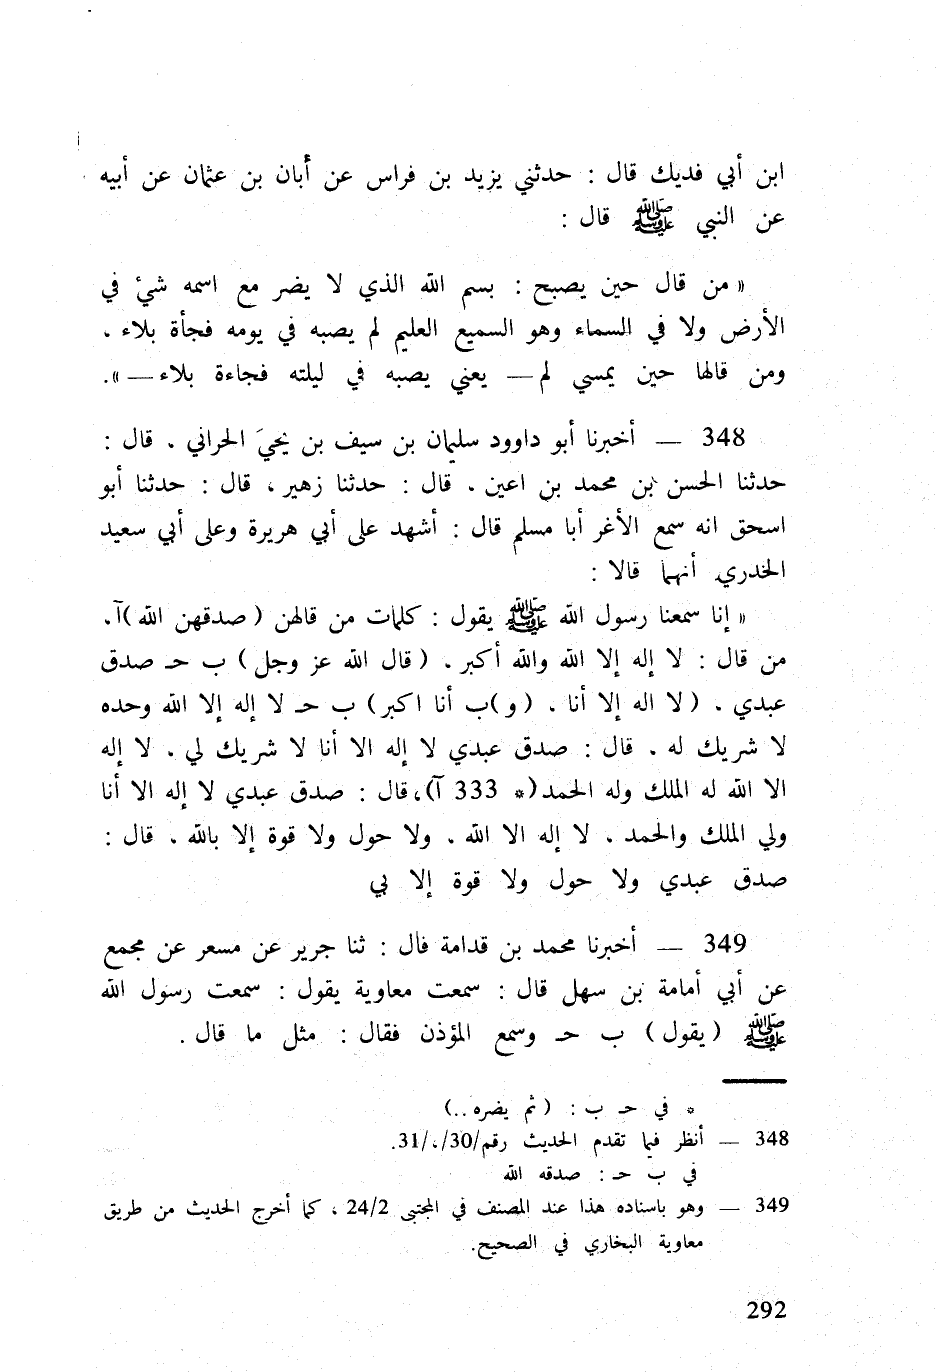 ابن أبي فديك قال : حدثني يزيد بن فراس عن أبان بن عثمان عن أبيه
عن النبي ﷺ قال :
« من قال حين يصبح : بسم الله الذي لا يضر مع اسمه شيْ في
الأرض ولا في السماء وهو السميع العليم لم يصبه في يومه فجأة بلاء .
ومن قالها حين يمسي لم — يعني يصبه في ليلته فجاءة بلاء — ».
348 — أخبرنا أبو داوود سليمان بن سيف بن يحيَ الحراني . قال :
حدثنا الحسن بن محمد بن اعين . قال : حدثنا زهير ، قال : حدثنا أبو
اسحق انه سمع الأغر أبا مسلم قال : أشهد على أبي هريرة وعلى أبي سعيد
الخدري أنهما قالا :
« إنا سمعنا رسول الله ﷺ يقول : كلمات من قالهن ( صدقهن الله )آ.
من قال : لا إله إلا الله والله أكبر . ( قال الله عز وجل ) ب حـ صدق
عبدي . ( لا اله إلا أنا . ( و)ب أنا اكبر ) ب حـ لا إله إلا الله وحده
لا شريك له . قال : صدق عبدي لا إله الا أنا لا شريك لي . لا إله
الا الله له الملك وله الحمد (* 333 آ)، قال : صدق عبدي لا إله الا أنا
ولي الملك والحمد . لا إله الا الله . ولا حول ولا قوة إلا بالله . قال :
صدق عبدي ولا حول ولا قوة إلا بي
349 — أخبرنا محمد بن قدامة قال : ثنا جرير عن مسعر عن مجمع
عن أبي أمامة بن سهل قال : سمعت معاوية يقول : سمعت رسول الله
ﷺ ( يقول ) ب حـ وسمع المؤذن فقال : مثل ما قال .
* في حـ ب : ( ثم يضره ..)
348 — أنظر فيما تقدم الحديث رقم/30/،/31.
في ب حـ : صدقه الله
349 — وهو باسناده هذا عند المصنف في المجتبى 24/2 ، كما أخرج الحديث من طريق
معاوية البخاري في الصحيح.
292